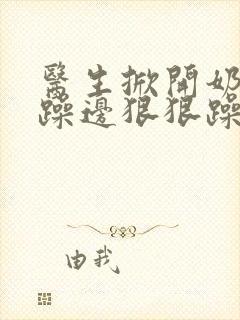 醫生掀開奶
躁邊狠狠躁
由我